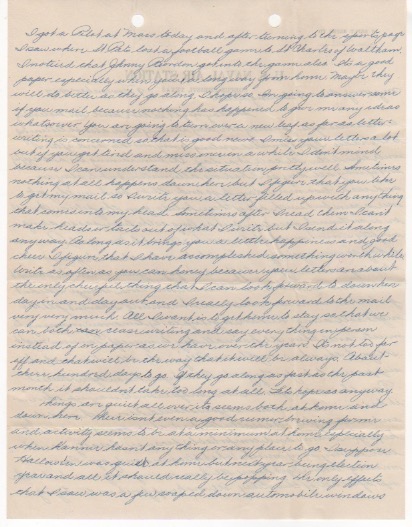 I got a Pilot at Mass today and after turning to the sports page
I saw where St Pats lost a football game to St Charles of Waltham.
I noticed that Johnny Bonton got into the game also. Its a good
paper especially when you're a long way from home. Maybe they
will do better as they go along I hope so. I'm going to answer some
if you mail because nothing has happened to give me any ideas
whatsoever. You are going to turn over a new leaf as far as letter
writing is concerned so that is good news. I miss your letters a lot
but if you get tired and miss one once in a while I don't mind
because I can understand the situation pretty well. Sometimes
nothing at all happens down here but I figure that you like
to get my mail so I write you a letter filled up with anything
that comes into my head. Sometimes after I read them I can't
make heads or tails out of what I write but I send it along
anyway. As long as it brings you a little happiness and good
cheer I figure that I have accomplished something worth while
Write as often as you can honey because your letters are about
the only cheerful thing that I can look forward to down here
day in and day out and I really look forward to the mail
very very much. All I want is to get home to stay so that we
can both cease writing and say everything in person
instead of on paper as we have over the years. It's not too far
off and that will be the way that it will be always. About
three hundred days to go. If they go along as fast as the past
month it shouldn't take too long at all. Lets hope so anyway.
Things are quiet all over its seems both at home and
down here. There isn't even a good rumor brewing for me
and activity seems to be at a minimum at home especially
when Ranner hasn't anything or any place to go. I suppose
Halloween was quiet at home but with you being election
year and all it should really be popping. The only effects
that I saw was a few soaped down automobile windows